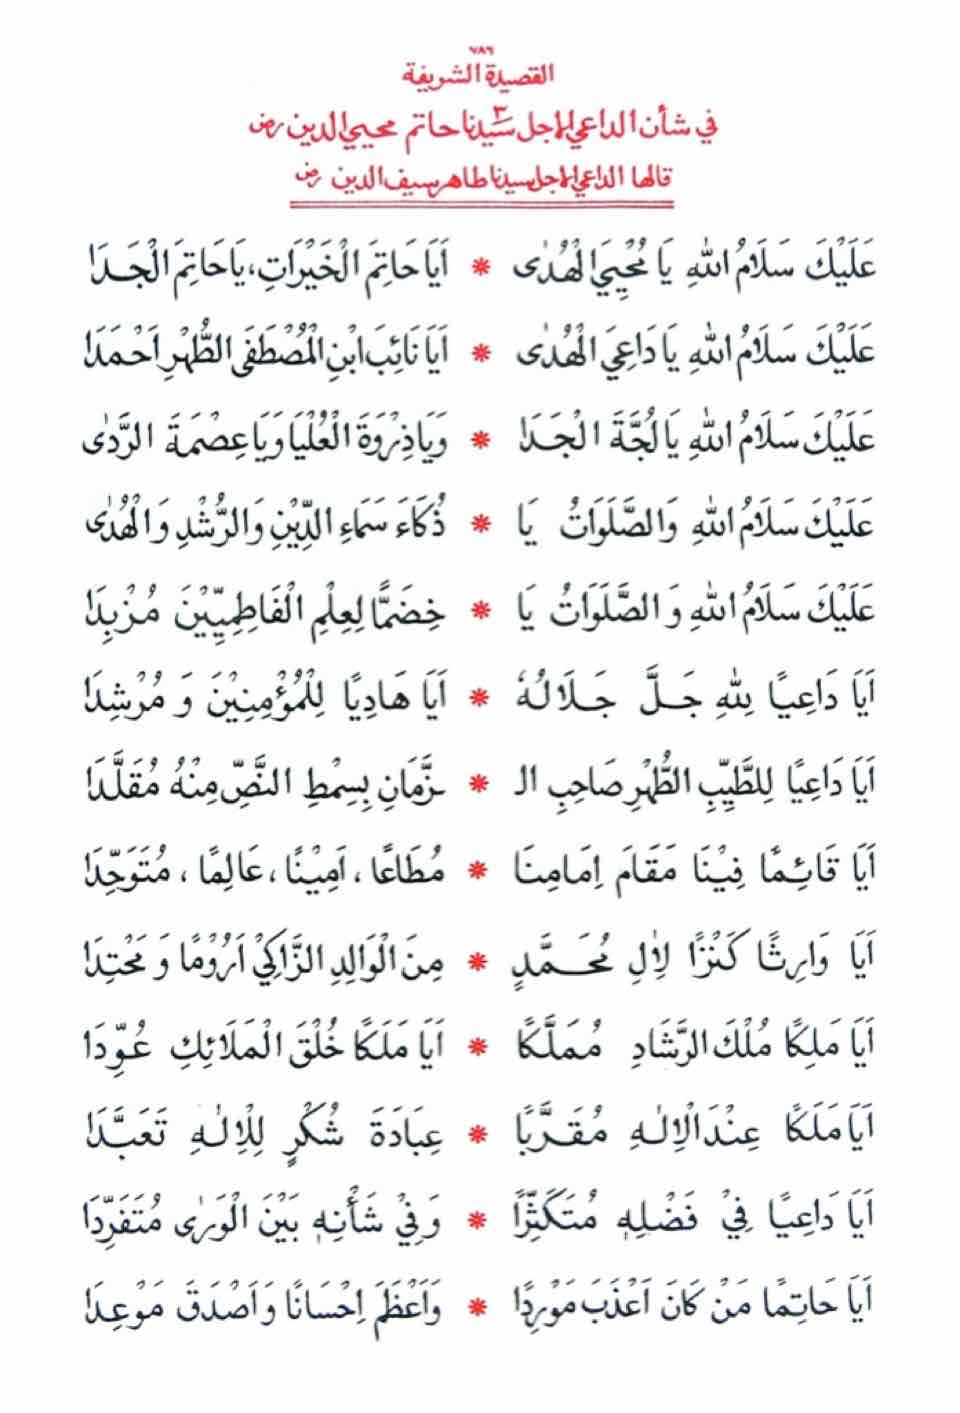 ٧٨٦
القصيدة الشريفة
في شأن الداعي الاجل سيدنا حاتم محيي الدين رض
قالها الداعي الاجل سيدنا طاهر سيف الدين رض
عَلَيْكَ سَلَامُ اللهِ يَا مُحْيِيَ الْهُدٰى * اَيَا حَاتِمَ الْخَيْرَاتِ، يَا حَاتِمَ الْجَدَا
عَلَيْكَ سَلَامُ اللهِ يَا دَاعِيَ الْهُدٰى * اَيَا نَائِبَ ابْنِ الْمُصْطَفَى الطُّهْرِ اَحْمَدَا
عَلَيْكَ سَلَامُ اللهِ يَا لُجَّةَ الْجَدَا * وَيَا ذِرْوَةَ الْعُلْيَا وَيَا عِصْمَةَ الرَّدٰى
عَلَيْكَ سَلَامُ اللهِ وَالصَّلَوَاتُ يَا * ذُكَاءَ سَمَاءِ الدِّيْنِ وَالرُّشْدِ وَالْهُدٰى
عَلَيْكَ سَلَامُ اللهِ وَ الصَّلَوَاتُ يَا * خِضَمًّا لِعِلْمِ الْفَاطِمِيِّيْنَ مُزْبِدَا
اَيَا دَاعِيًا لِلهِ جَلَّ جَلَالُهٗ * اَيَا هَادِيًا لِلْمُؤْمِنِيْنَ وَ مُرْشِدَا
اَيَا دَاعِيًا لِلطَّيِّبِ الطُّهْرِ صَاحِبِ الـ * ـزَّمَانِ بِسِمْطِ النَّصِّ مِنْهُ مُقَلَّدَا
اَيَا قَائِمًا فِيْنَا مَقَامَ اِمَامِنَا * مُطَاعًا، اَمِيْنًا، عَالِمًا، مُتَوَحِّدَا
اَيَا وَارِثًا كَنْزًا لِاٰلِ مُحَمَّدٍ * مِنَ الْوَالِدِ الزَّاكِيْ اَرُوْمًا وَ مَحْتِدَا
اَيَا مَلِكًا مُلْكَ الرَّشَادِ مُمَلَّكًا * اَيَا مَلَكًا خُلْقَ الْمَلَائِكِ عُوِّدَا
اَيَا مَلَكًا عِنْدَ الْاِلٰهِ مُقَرَّبًا * عِبَادَةَ شُكْرٍ لِلْاِلٰهِ تَعَبَّدَا
اَيَا دَاعِيًا فِيْ فَضْلِهٖ مُتَكَثِّرًا * وَفِيْ شَأْنِهٖ بَيْنَ الْوَرٰى مُتَفَرِّدَا
اَيَا حَاتِمًا مَنْ كَانَ اَعْذَبَ مَوْرِدًا * وَاَعْظَمَ اِحْسَانًا وَاَصْدَقَ مَوْعِدَا